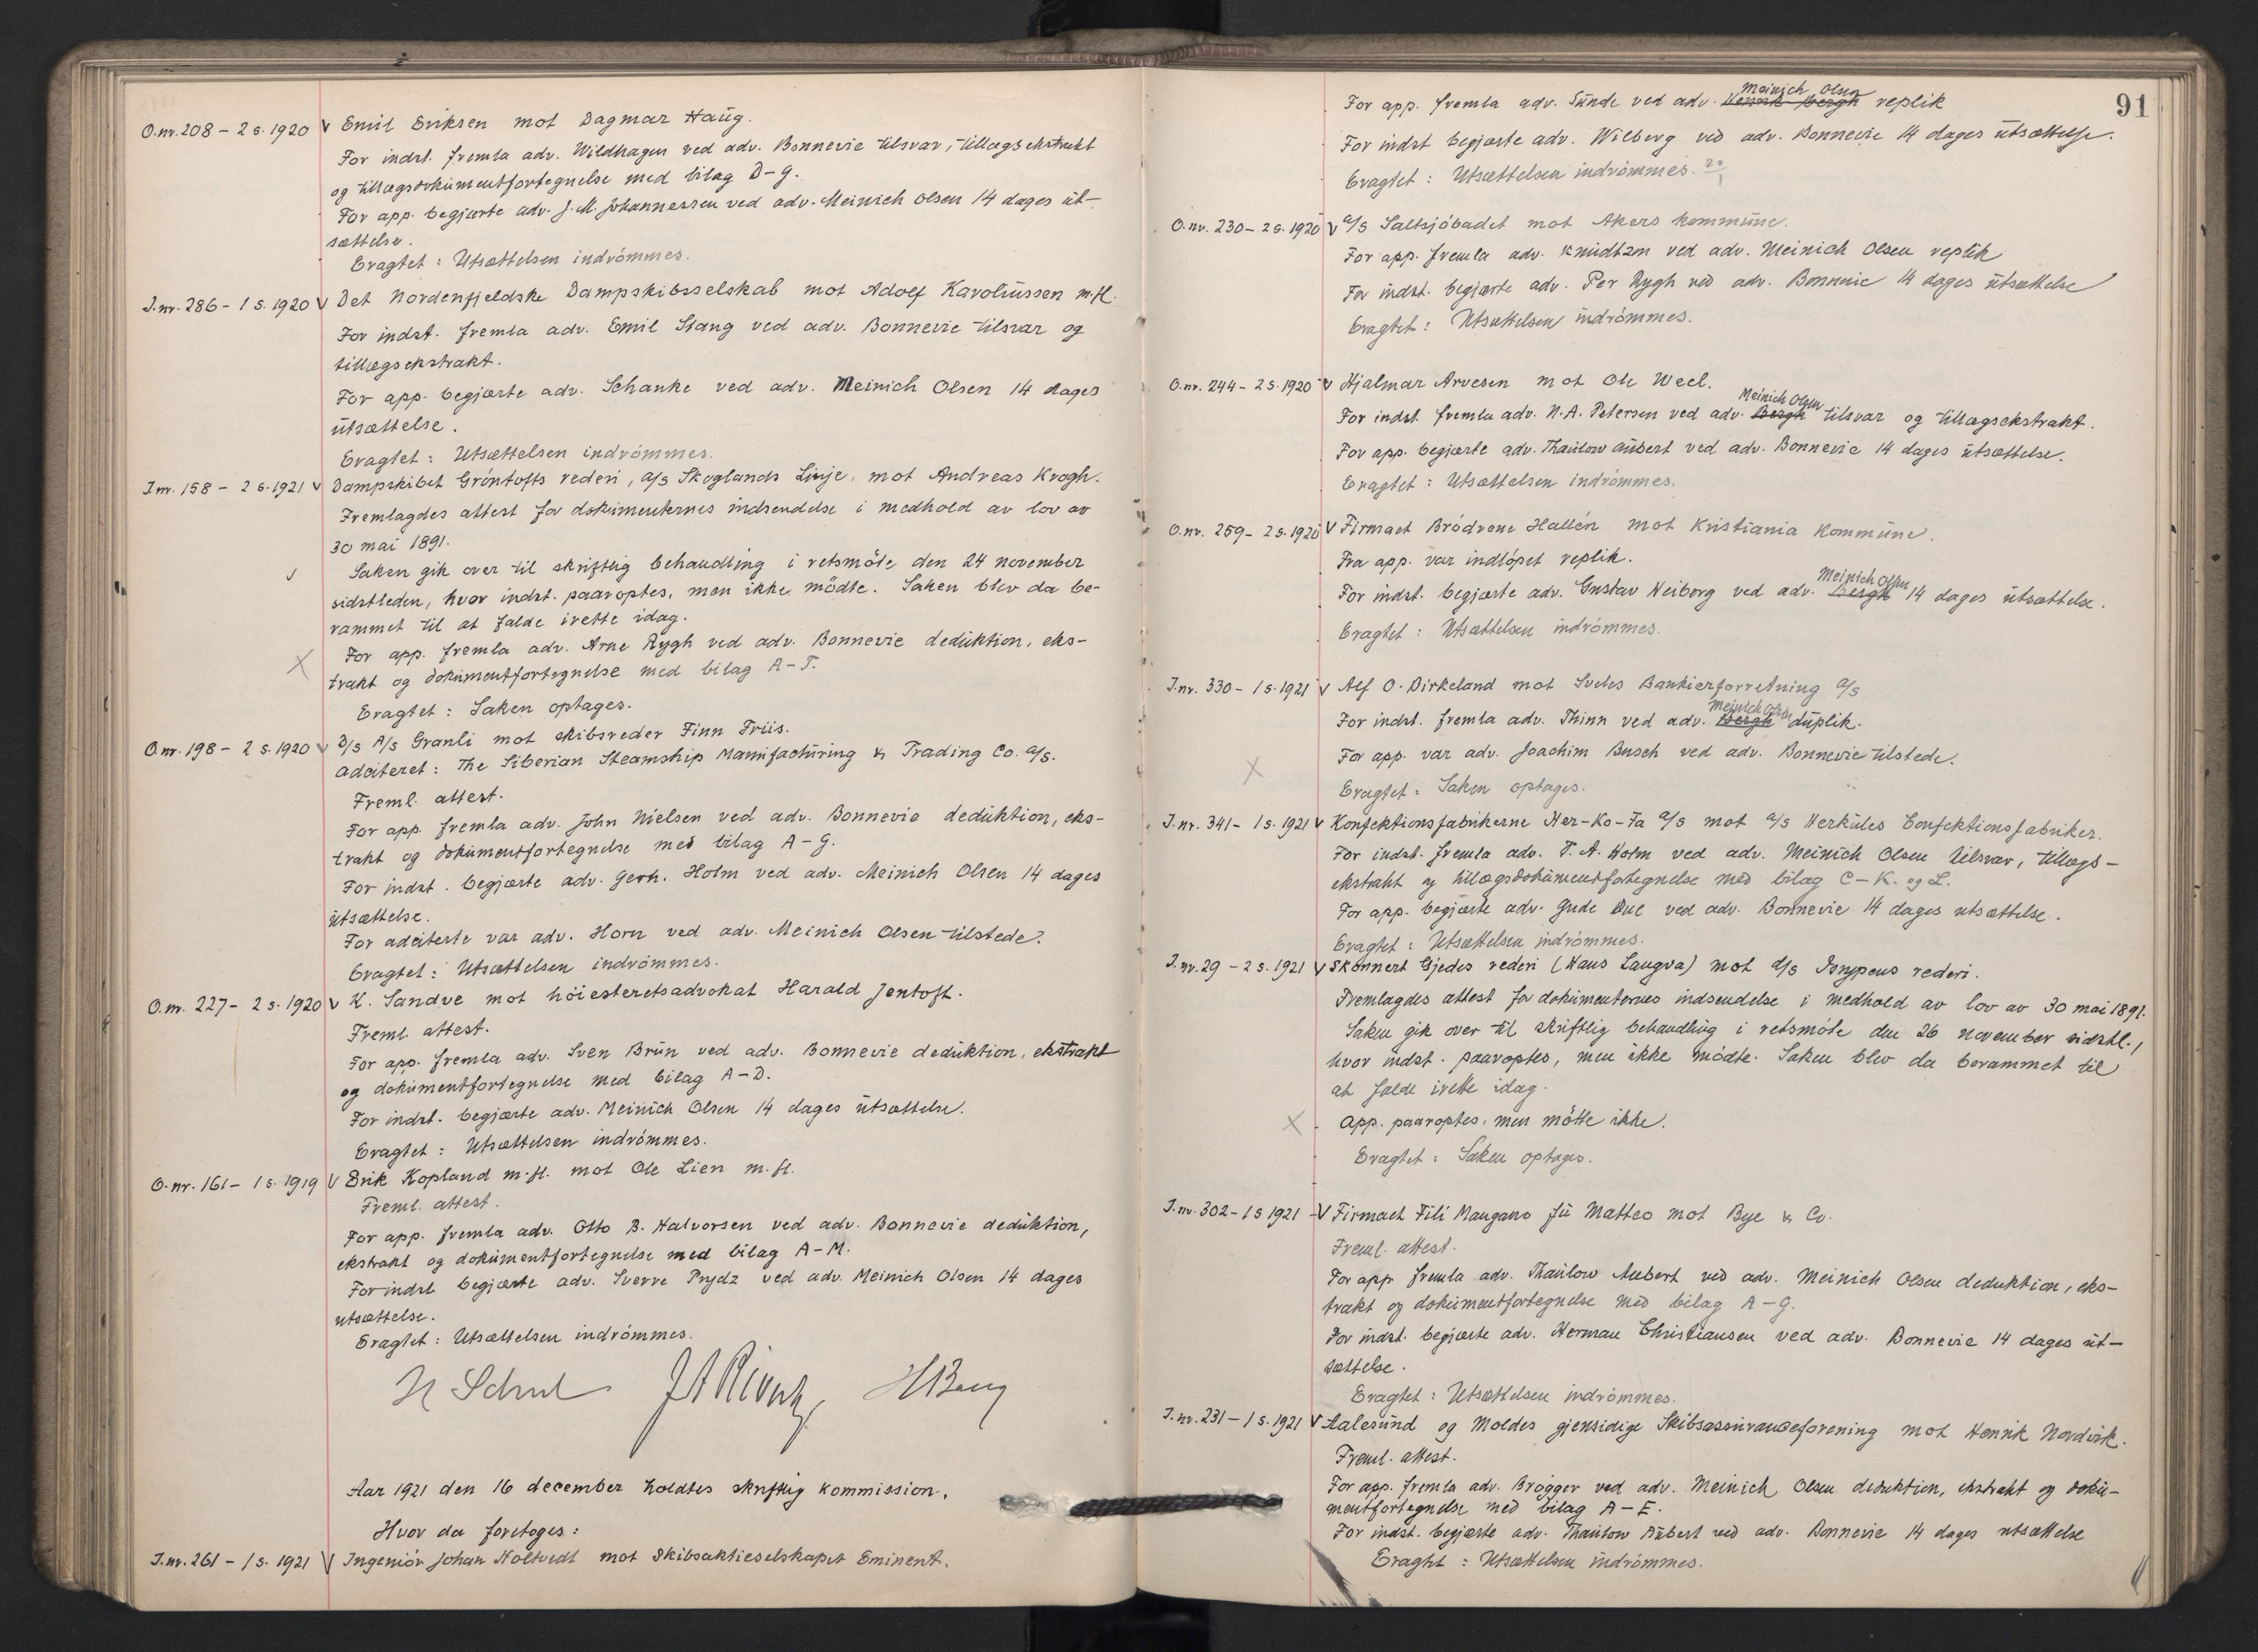 O.nr. 208 – 2 s. 1920 V Emil Eriksen mot Dagmar Haug.
For indst. fremla adv. Wildhagen ved adv. Bonnevie tilsvar, tillægsekstrakt
og tillægsdokumentfortegnelse med bilag D–G.
For app. begjærte adv. J. M. Johannessen ved adv. Meinich Olsen 14 dages ut-
sættelse.
Eragtet: Utsættelsen indrömmes.
I.nr. 286 – 1 s. 1920 V Det Nordenfjeldske Dampskibsselskab mot Adolf Karoliussen m.fl.
For indst. fremla adv. Emil Stang ved adv. Bonnevie tilsvar og
tillægsekstrakt.
For app. begjærte adv. Schanke ved adv. Meinich Olsen 14 dages
utsættelse.
Eragtet: Utsættelsen indrömmes.
I.nr. 158 – 2 s. 1921 V Dampskibet Gröntofts rederi, A/S Skoglands Linje, mot Andreas Krogh.
Fremlagdes attest for dokumenternes indsendelse i medhold av lov av
30 mai 1891.
Saken gik over til skriftlig behandling i retsmöte den 24 november
sidstleden, hvor indst. paaroptes, men ikke mödte. Saken blev da be-
rammet til at falde irette idag.
For app. fremla adv. Arne Rygh ved adv. Bonnevie deduktion, eks-
trakt og dokumentfortegnelse med bilag A–T.
Eragtet: Saken optages.
O.nr. 198 – 2 s. 1920 V D/S A/S Granli mot skibsreder Finn Friis.
Adciteret: The Siberian Steamship Manufacturing & Trading Co. A/S.
Freml. attest.
For app. fremla adv. John Nielsen ved adv. Bonnevie deduktion, eks-
trakt og dokumentfortegnelse med bilag A–G.
For indst. begjærte adv. Gerh. Holm ved adv. Meinich Olsen 14 dages
utsættelse.
For adciterte var adv. Horn ved adv. Meinich Olsen tilstede.
Eragtet: Utsættelsen indrömmes.
O.nr. 227 – 2 s. 1920 V K. Sandve mot höiesteretsadvokat Harald Jentoft.
Freml. attest.
For app. fremla adv. Sven Brun ved adv. Bonnevie deduktion, ekstrakt
og dokumentfortegnelse med bilag A–D.
For indst. begjærte adv. Meinich Olsen 14 dages utsættelse.
Eragtet: Utsættelsen indrömmes.
O.nr. 161 – 1 s. 1919 V Erik Kopland m.fl. mot Ole Lien m.fl.
Freml. attest.
For app. fremla adv. Otto B. Halvorsen ved adv. Bonnevie deduktion,
ekstrakt og dokumentfortegnelse med bilag A–M.
For indst. begjærte adv. Sverre Prydz ved adv. Meinich Olsen 14 dages
utsættelse.
Eragtet: Utsættelsen indrömmes.
Aar 1921 den 16 december holdtes skriftlig kommission.
Hvor da foretoges:
I.nr. 261 – 1 s. 1921 V Ingeniör Johan Holtvedt mot Skibsaktieselskapet Eminent.
91
Meinich Olsen
For app. fremla adv. Sunde ved adv. Henrik Bergh replik
For indst begjærte adv. Wilberg ved adv. Bonnevie 14 dages utsættelse.
Eragtet: Utsættelsen indrömmes.
O.nr. 230 – 2 s. 1920 V A/S Saltsjöbadet mot Akers kommune.
For app. fremla adv. Knudtzon ved adv. Meinich Olsen replik
For indst. begjærte adv. Per Rygh ved adv. Bonnevie 14 dages utsættelse
Eragtet: Utsættelsen indrömmes.
O.nr. 244 – 2 s. 1920 V Hjalmar Arvesen mot Ole Weel.
Meinich Olsen
For indst. fremla adv. N. A. Petersen ved adv. Bergh tilsvar og tillægsekstrakt.
For app. begjærte adv. Thaulow Aubert ved adv. Bonnevie 14 dages utsættelse.
Eragtet: Utsættelsen indrömmes.
O.nr. 259 – 2 s. 1920 V Firmaet Brödrene Hallén mot Kristiania Kommune.
Fra app. var indlöpet replik.
Meinich Olsen
For indst. begjærte adv. Gustav Heiberg ved adv. Bergh 14 dages utsættelse.
Eragtet: Utsættelsen indrömmes.
I.nr. 330 – 1 s. 1921 V Alf O. Birkeland mot Sveles Bankierforretning A/S
Meinich Olsen
For indst. fremla adv. Thinn ved adv. Bergh duplik.
For app. var adv. Joachim Busch ved adv. Bonnevie tilstede.
Eragtet: Saken optages.
I.nr. 341 – 1 s. 1921 V Konfektionsfabrikerne Her-Ko-Fa A/S mot A/S Herkules Confektionsfabriker.
For indst. fremla adv. T. A. Holm ved adv. Meinich Olsen tilsvar, tillægs-
ekstrakt og tillægsdokumentfortegnelse med bilag C–K. og L.
For app. begjærte adv. Gude Due ved adv. Bonnevie 14 dages utsættelse.
Eragtet: Utsættelsen indrömmes.
I.nr. 29 – 2 s. 1921 V Skonnert Gjedes rederi (Hans Langva) mot rederi.
Fremlagdes attest for dokumenternes indsendelse i medhold av lov av 30 mai 1891.
Saken gik over til skriftlig behandling i retsmöte den 26 november sidstl.,
hvor indst. paaroptes, men ikke mödte. Saken blev da berammet til
at falde irette idag.
App. paaroptes, men mötte ikke.
Eragtet: Saken optages.
I.nr. 302 – 1 s 1921 V Firmaet Fili Mangano fu Matteo mot Bye & Co.
Freml. attest.
For app fremla adv. Thaulow Aubert ved adv. Meinich Olsen deduktion, eks-
trakt og dokumentfortegnelse med bilag A–G.
For indst. begjærte adv. Herman Christiansen ved adv. Bonnevie 14 dages ut-
sættelse.
Eragtet: Utsættelsen indrömmes.
I.nr. 231 – 1 s. 1921 V Aalesund og Moldes gjensidige Skibsassuranceforening mot Henrik Nordvik.
Freml. attest.
For app. fremla adv. Brögger ved adv. Meinich Olsen deduktion, ekstrakt og doku-
mentfortegnelse med bilag A–E.
For indst. begjærte adv. Thaulow Aubert ved adv. Bonnevie 14 dages utsættelse
Eragtet: Utsættelsen indrömmes.